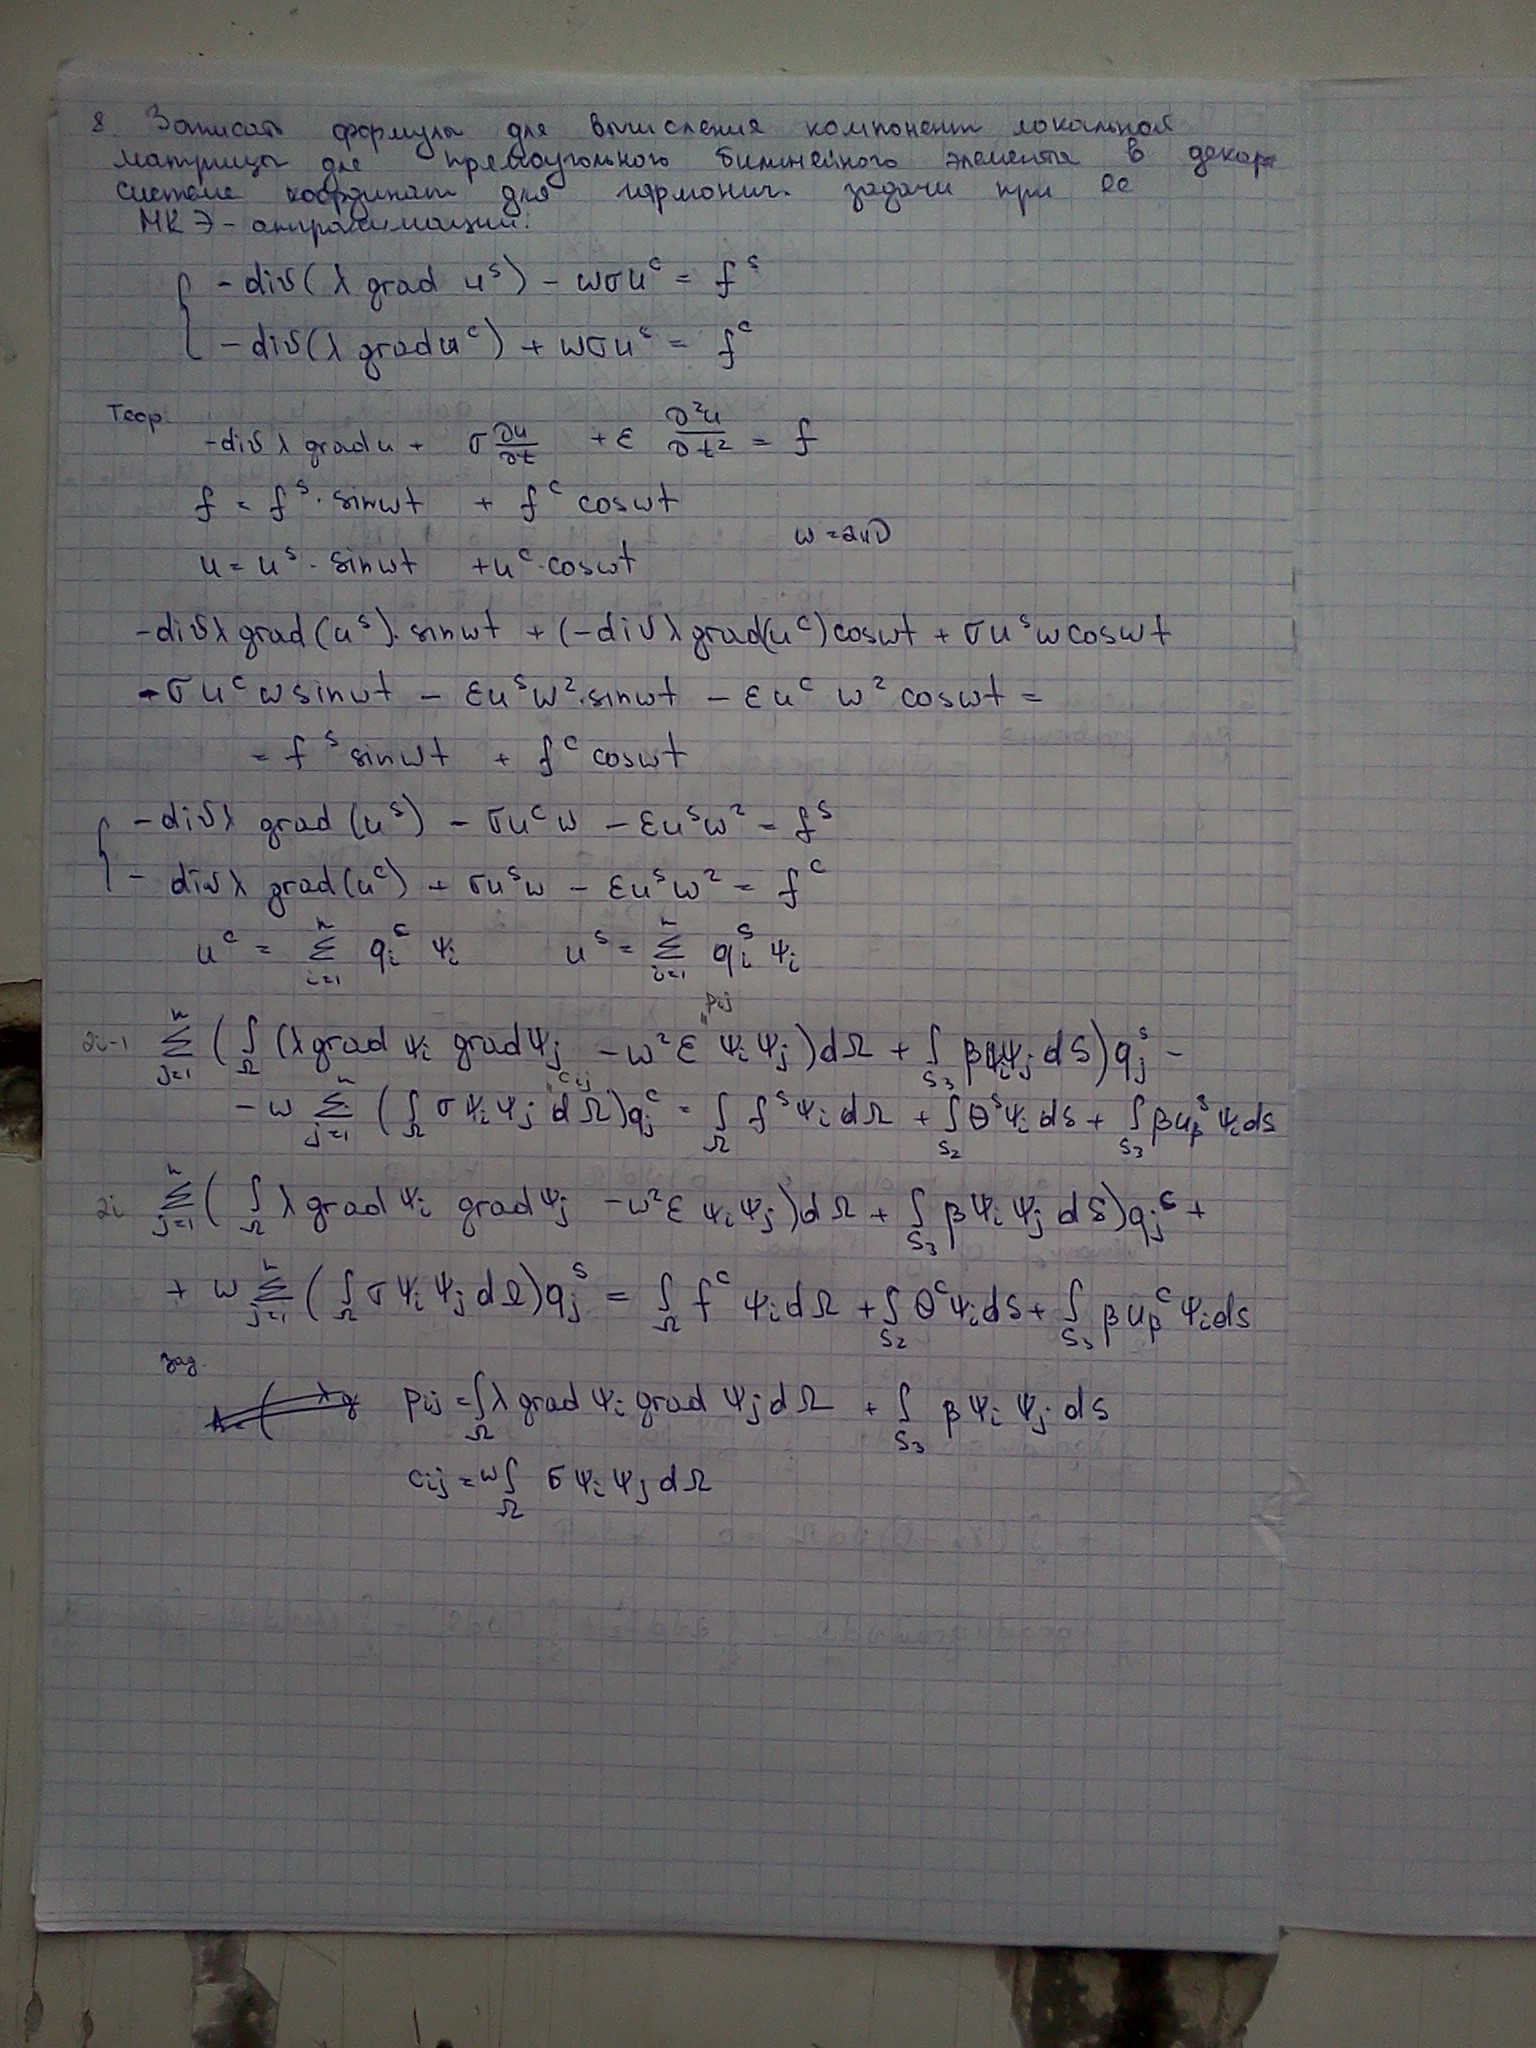 8. Записать формулы для вычисления компонент локальной
матрицы для прямоугольного билинейного элемента в декарт
системе координат для гармонич. задачи при ее
МКЭ-аппроксимации:
{ -div(λ grad u^s) - ωσu^c = f^s
-div(λ grad u^c) + ωσu^s = f^c
Теор.
-div λ grad u + σ ∂u/∂t + ε ∂²u/∂t² = f
f = f^s · sinωt + f^c cosωt
ω = 2πν
u = u^s · sinωt + u^c · cosωt
-div λ grad(u^s) · sinωt + (-div λ grad(u^c) cosωt + σu^s ω cosωt
- σu^c ω sinωt - εu^s ω² · sinωt - εu^c ω² cosωt =
= f^s sinωt + f^c cosωt
{ -div λ grad (u^s) - σu^c ω - εu^s ω² = f^s
- div λ grad(u^c) + σu^s ω - εu^s ω² = f^c
u^c = Σ_{i=1}^n q_i^c ψ_i u^s = Σ_{i=1}^n q_i^s ψ_i
p_ij
2i-1 Σ_{j=1}^n ( ∫_Ω (λ grad ψ_i grad ψ_j - ω²ε ψ_i ψ_j) dΩ + ∫_{S_3} βψ_iψ_j dS) q_j^s -
c_ij
- ω Σ_{j=1}^n ( ∫_Ω σψ_i ψ_j dΩ) q_j^c = ∫_Ω f^s ψ_i dΩ + ∫_{S_2} θ^s ψ_i ds + ∫_{S_3} βu_β^s ψ_i ds
2i Σ_{j=1}^n ( ∫_Ω λ grad ψ_i grad ψ_j - ω²ε ψ_i ψ_j) dΩ + ∫_{S_3} β ψ_i ψ_j dS) q_j^c +
+ ω Σ_{j=1}^n ( ∫_Ω σ ψ_i ψ_j dΩ) q_j^s = ∫_Ω f^c ψ_i dΩ + ∫_{S_2} θ^c ψ_i ds + ∫_{S_3} β u_β^c ψ_i ds
зад.
p_ij = ∫_Ω λ grad ψ_i grad ψ_j dΩ + ∫_{S_3} β ψ_i ψ_j ds
c_ij = ω ∫_Ω σ ψ_i ψ_j dΩ